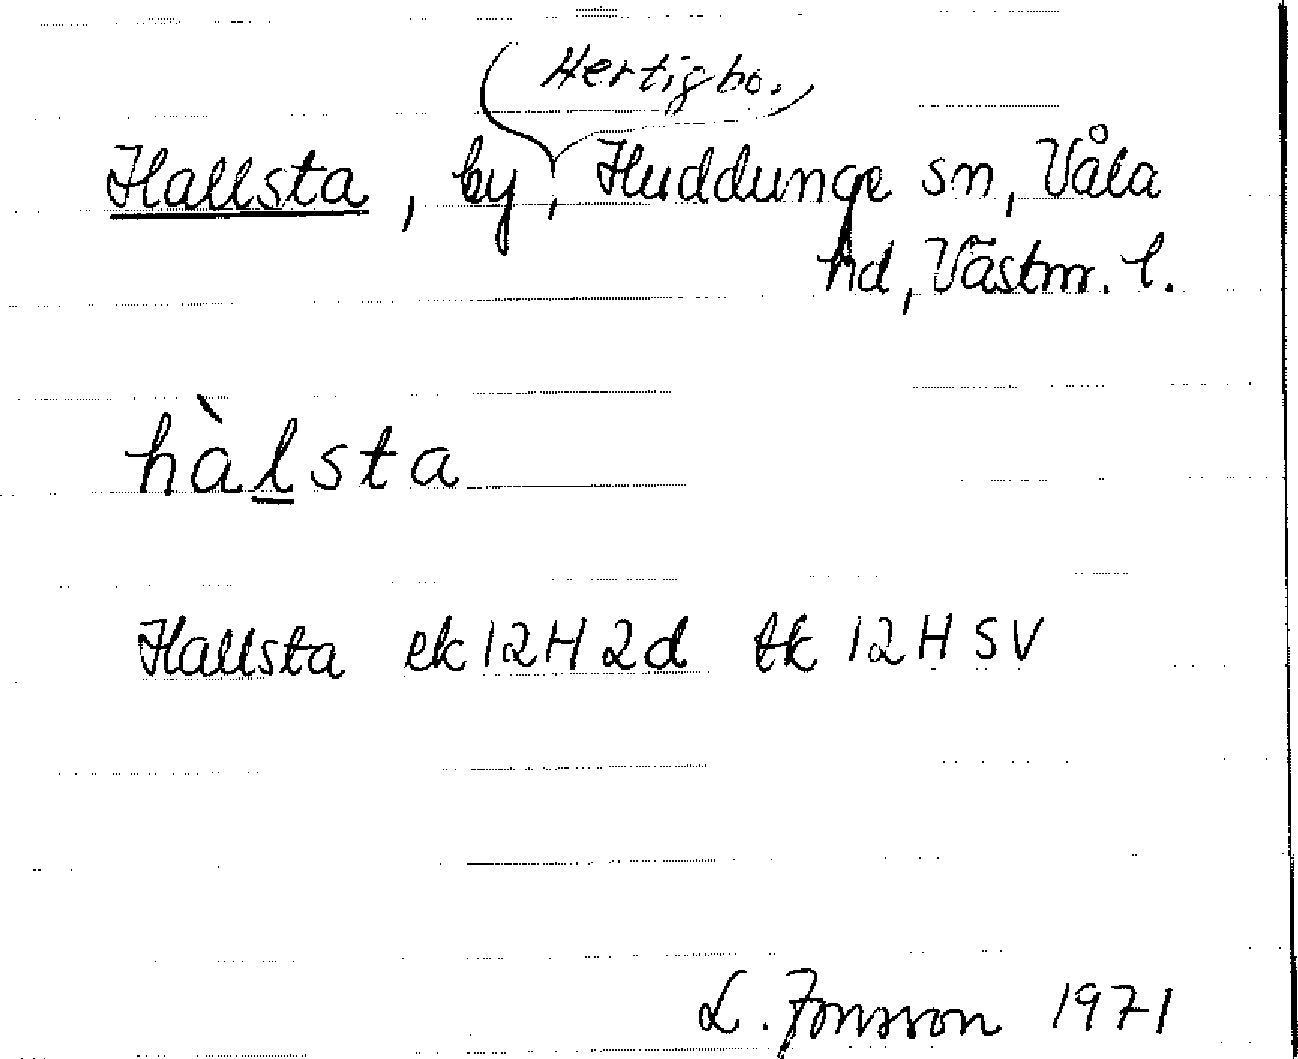 (Hertigbo.)
Hallsta, by, Huddunge sn, Våla
hd, Västm. l.
hàl̲sta
Hallsta ek 12H2d tk 12H SV
L. Jonsson 1971